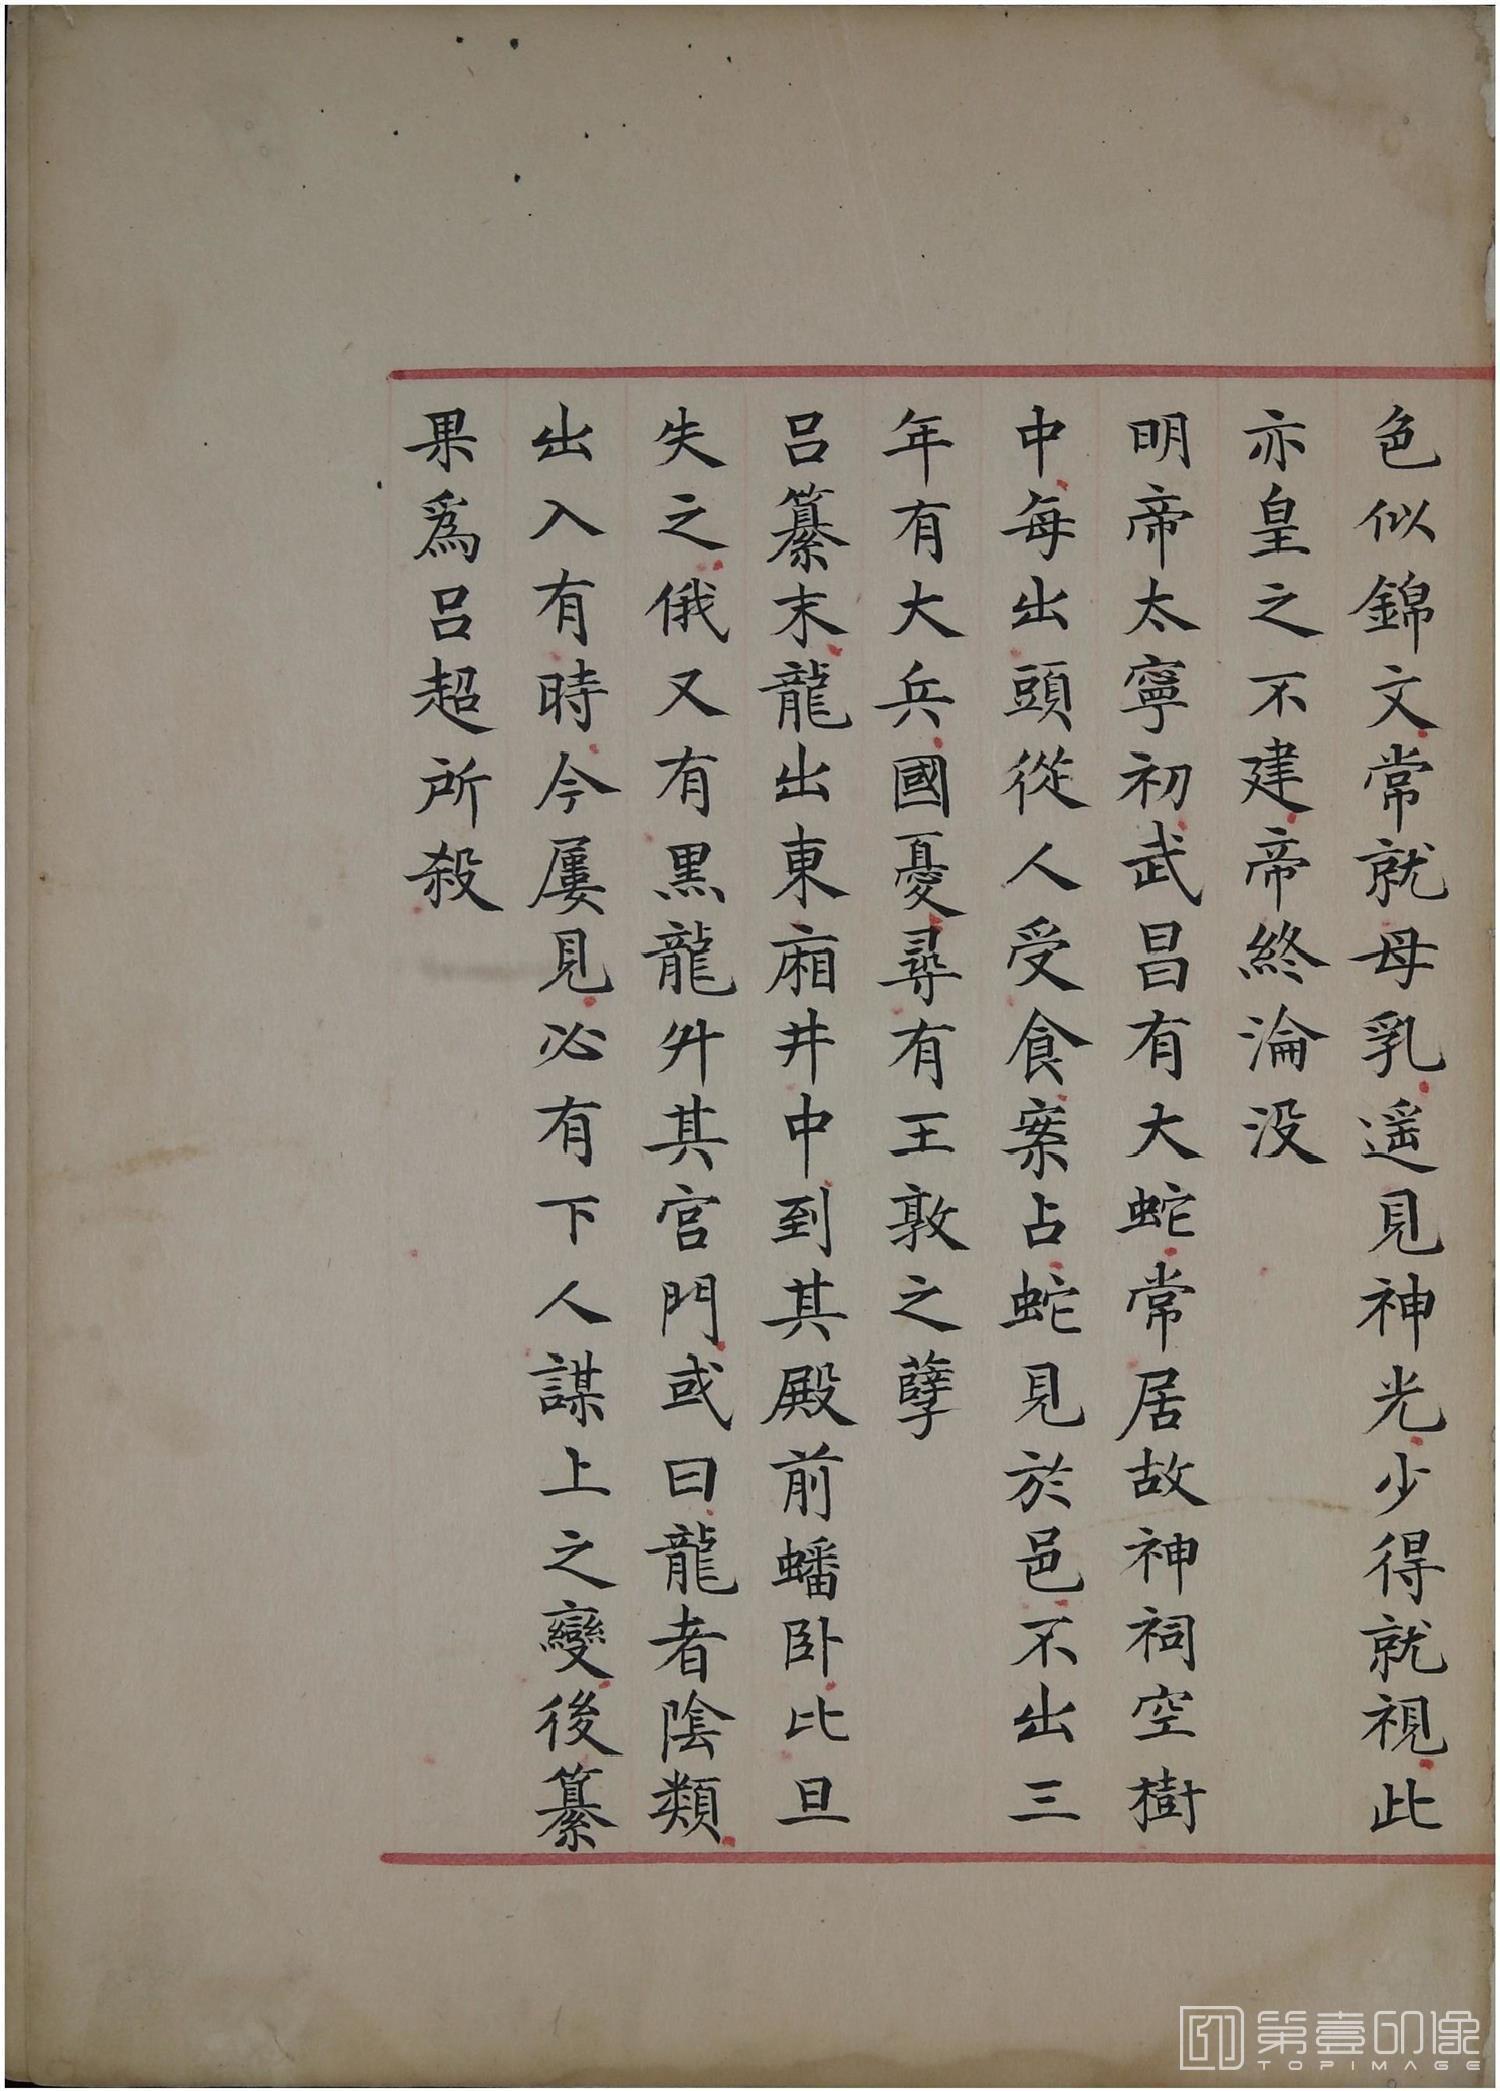 色似錦文常就母乳遥見神光少得就視此
亦皇之不建帝終淪没
明帝太寧初武昌有大蛇常居故神祠空樹
中每出頭從人受食案占蛇見於邑不出三
年有大兵國憂尋有王敦之孽
吕纂末龍出東廂井中到其殿前蟠卧比旦
失之俄又有黒龍升其宫門或曰龍者陰類
出入有時今屢見必有下人謀上之變後纂
果爲吕超所殺
第壹印像
TOPIMAGE